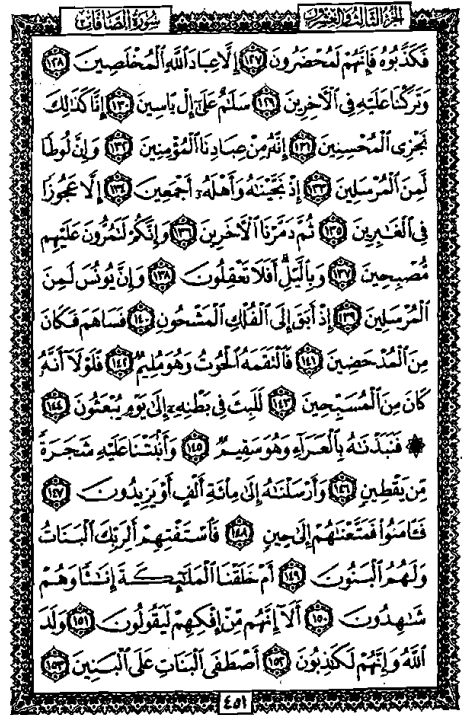 الجزء الثالث والعشرون
سورة الصافات
فَكَذَّبُوهُ فَإِنَّهُمْ لَمُحْضَرُونَ ١٢٧ إِلَّا عِبَادَ ٱللَّهِ ٱلْمُخْلَصِينَ ١٢٨
وَتَرَكْنَا عَلَيْهِ فِى ٱلْءَاخِرِينَ ١٢٩ سَلَٰمٌ عَلَىٰٓ إِلْ يَاسِينَ ١٣٠ إِنَّا كَذَٰلِكَ
نَجْزِى ٱلْمُحْسِنِينَ ١٣١ إِنَّهُۥ مِنْ عِبَادِنَا ٱلْمُؤْمِنِينَ ١٣٢ وَإِنَّ لُوطًا
لَّمِنَ ٱلْمُرْسَلِينَ ١٣٣ إِذْ نَجَّيْنَٰهُ وَأَهْلَهُۥٓ أَجْمَعِينَ ١٣٤ إِلَّا عَجُوزًا
فِى ٱلْغَٰبِرِينَ ١٣٥ ثُمَّ دَمَّرْنَا ٱلْءَاخَرِينَ ١٣٦ وَإِنَّكُمْ لَتَمُرُّونَ عَلَيْهِم
مُّصْبِحِينَ ١٣٧ وَبِٱلَّيْلِ ۗ أَفَلَا تَعْقِلُونَ ١٣٨ وَإِنَّ يُونُسَ لَمِنَ
ٱلْمُرْسَلِينَ ١٣٩ إِذْ أَبَقَ إِلَى ٱلْفُلْكِ ٱلْمَشْحُونِ ١٤٠ فَسَاهَمَ فَكَانَ
مِنَ ٱلْمُدْحَضِينَ ١٤١ فَٱلْتَقَمَهُ ٱلْحُوتُ وَهُوَ مُلِيمٌ ١٤٢ فَلَوْلَآ أَنَّهُۥ
كَانَ مِنَ ٱلْمُسَبِّحِينَ ١٤٣ لَلَبِثَ فِى بَطْنِهِۦٓ إِلَىٰ يَوْمِ يُبْعَثُونَ ١٤٤
۞ فَنَبَذْنَٰهُ بِٱلْعَرَآءِ وَهُوَ سَقِيمٌ ١٤٥ وَأَنۢبَتْنَا عَلَيْهِ شَجَرَةً
مِّن يَقْطِينٍ ١٤٦ وَأَرْسَلْنَٰهُ إِلَىٰ مِا۟ئَةِ أَلْفٍ أَوْ يَزِيدُونَ ١٤٧
فَـَٔامَنُوا۟ فَمَتَّعْنَٰهُمْ إِلَىٰ حِينٍ ١٤٨ فَٱسْتَفْتِهِمْ أَلِرَبِّكَ ٱلْبَنَاتُ
وَلَهُمُ ٱلْبَنُونَ ١٤٩ أَمْ خَلَقْنَا ٱلْمَلَٰٓئِكَةَ إِنَٰثًا وَهُمْ
شَٰهِدُونَ ١٥٠ أَلَآ إِنَّهُم مِّنْ إِفْكِهِمْ لَيَقُولُونَ ١٥١ وَلَدَ
ٱللَّهُ وَإِنَّهُمْ لَكَٰذِبُونَ ١٥٢ أَصْطَفَى ٱلْبَنَاتِ عَلَى ٱلْبَنِينَ ١٥٣
٤٥١